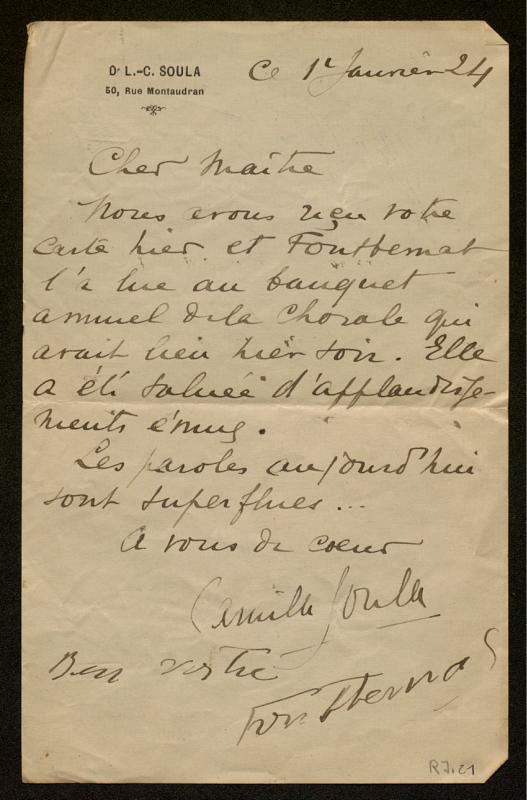 Dr L.-C. SOULA
50, Rue Montaudran
Ce 1r Janvier 24
Cher Maître
Nous avons reçu votre
carte hier et Fontbernat
l'a lue au banquet
annuel de la Chorale qui
avait lieu hier soir. Elle
a été saluée d'applaudisse-
ments émus.
Les paroles aujourd'hui
sont superflues...
A vous de coeur
Camille Soula
Ben vostre
Fontbernat
R7.21